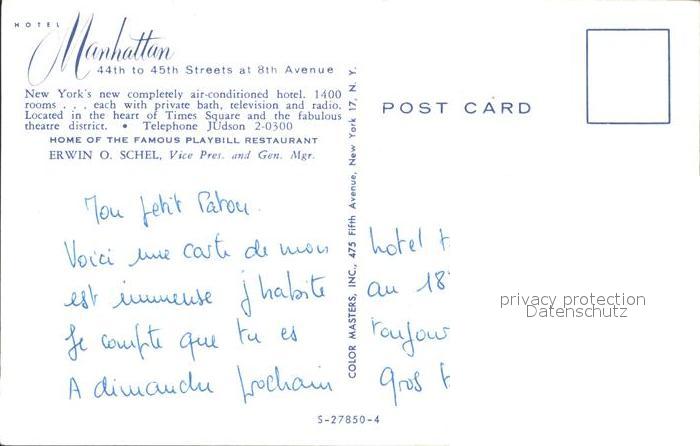 HOTEL
Manhattan
44th to 45th Streets at 8th Avenue
New York's new completely air-conditioned hotel. 1400
rooms . . . each with private bath, television and radio.
Located in the heart of Times Square and the fabulous
theatre district. • Telephone JUdson 2-0300
HOME OF THE FAMOUS PLAYBILL RESTAURANT
ERWIN O. SCHEL, Vice Pres. and Gen. Mgr.
COLOR MASTERS, INC., 475 Fifth Avenue, New York 17, N. Y.
POST CARD
Mon petit Patou.
Voici une carte de mon hotel
est immense j'habite au 18
Je compte que tu es toujour
A dimanche prochain Gros
privacy protection
Datenschutz
S-27850-4